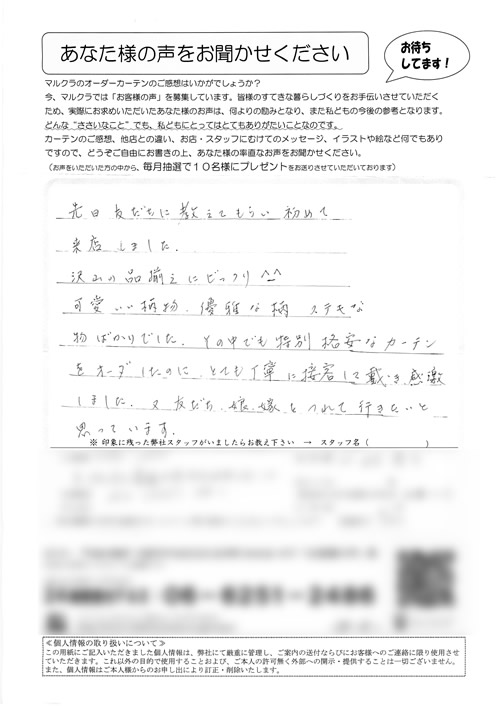 あなた様の声をお聞かせください
お待ち
してます!
マルクラのオーダーカーテンのご感想はいかがでしょうか?
今、マルクラでは「お客様の声」を募集しています。皆様のすてきな暮らしづくりをお手伝いさせていただく
ため、実際にお求めいただいたあなた様の声は、何よりの励みとなり、また私どもの今後の参考となります。
どんな“ささいなこと”でも、私どもにとってはとてもありがたいことなのです。
カーテンのご感想、他店との違い、お店・スタッフにむけてのメッセージ、イラストや絵など何でもあり
ですので、どうぞご自由にお書きの上、あなた様の率直なお声をお聞かせください。
(お声をいただいた方の中から、毎月抽選で10名様にプレゼントをお送りさせていただいております)
先日 友だちに教えてもらい 初めて
来店しました.
沢山の品揃えにビックリ ^^
可愛いい柄物、優雅な柄 ステキな
物ばかりでした. その中でも特別 格安なカーテン
をオーダしたのに とても丁寧に接客して戴き 感激
しました. 又 友だち、娘、嫁とつれて行きたいと
思っています.
※ 印象に残った弊社スタッフがいましたらお教え下さい → スタッフ名 ( )
06-6251-2486
≪個人情報の取り扱いについて≫
この用紙にご記入いただきました個人情報は、弊社にて厳重に管理し、ご案内の送付ならびにお客様へのご連絡に限り使用させ
ていただきます。これ以外の目的で使用することおよび、ご本人の許可無く外部への開示・提供することは一切ございません。
また、個人情報はご本人様からのお申し出により訂正・削除いたします。